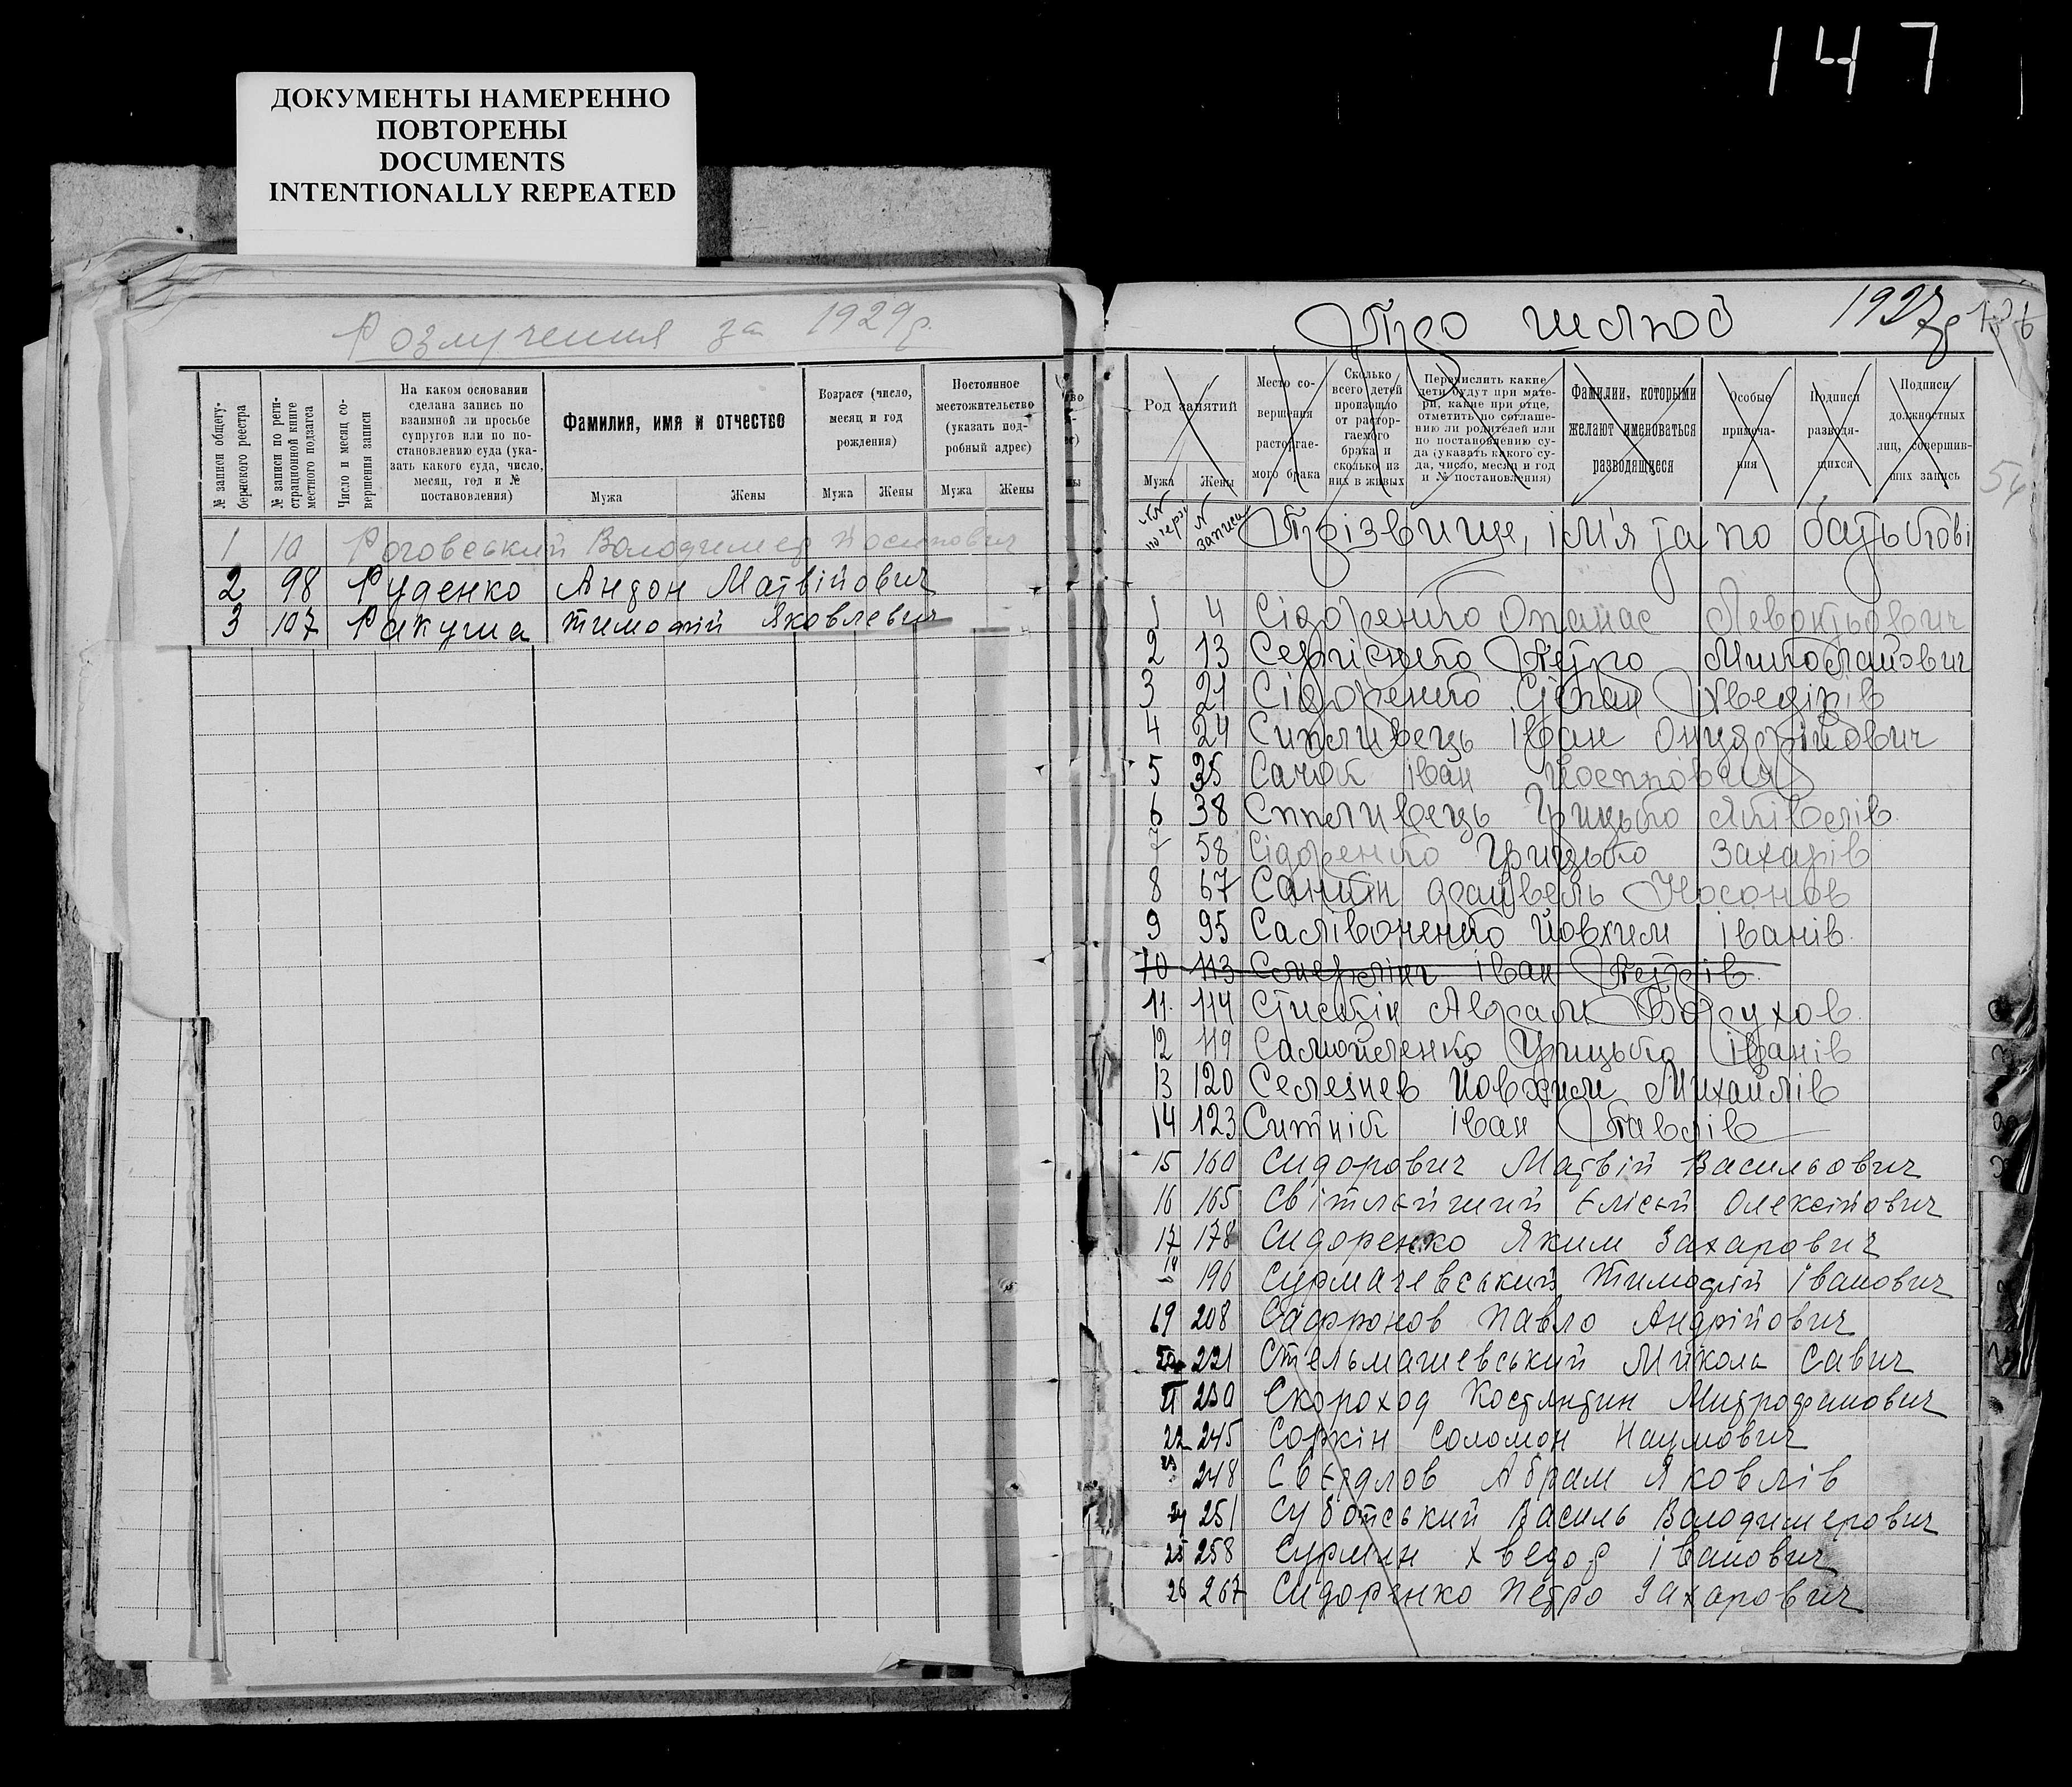 147
ДОКУМЕНТЫ НАМЕРЕННО
ПОВТОРЕНЫ
DOCUMENTS
INTENTIONALLY REPEATED
Розлучення за 1929 р.
№ записи общегу-
бернского реестра
№ записи по реги-
страционной книге
местного подзагса
Число и месяц со-
вершения записи
На каком основании
сделана запись по
взаимной ли просьбе
супругов или по по-
становлению суда (ука-
зать какого суда, число,
месяц, год и №
постановления)
Фамилия, имя и отчество
Мужа Жены
Возраст (число,
месяц и год
рождения)
Мужа Жены
Постоянное
местожительство
(указать под-
робный адрес)
Мужа Жены
1 10 Роговський Володимер Йосипович
2 98 Руденко Андон Матвійович
3 107 Ракуша Тимофій Яковлевич
Про шлюб 1927 р
54
Род занятий
Мужа Жены
Место со-
вершения
расторгае-
мого брака
Сколько
всего детей
произошло
от растор-
гаемого
брака и
сколько из
них в живых
Перечислить какие
дети будут при мате-
ри, какие при отце,
отметить по соглаше-
нию ли родителей или
по постановлению су-
да (указать какого су-
да, число, месяц и год
и № постановления)
Фамилии, которыми
желают именоваться
разводящиеся
Особые
примеча-
ния
Подписи
разводя-
щихся
Подписи
должностных
лиц, совершив-
ших запись
№№ по черзі № записи Прізвище, ім'я та по батькові
1 4 Сідоренко Опанас Левонтьович
2 13 Сергієнко Петро Миколайович
3 21 Сідоренко Степан Хведірів
4 24 Сипливець Іван Ондрійович
5 35 Сачок Іван Йосипович
6 38 Сипливець Грицько Яківлів
7 58 Сідоренко Грицько Захарів
8 67 Носонов
9 95 Салівоненко Йовхим Іванів
10 113 Іван Петрів
11 114 Аврам Борухов
12 119 Самойленко Грицько Іванів
13 120 Селезнев Йовхим Михайлів
14 123 Ситнік Іван Павлів
15 160 Сидорович Матвій Васильович
16 165 Світлєйший Єлісей Олексійович
17 178 Сидоренко Яким Захарович
18 196 Сурмачевський Тимофій Іванович
19 208 Сафронов Павло Андрійович
20 221 Стельмашевський Микола Савич
21 230 Скороход Костянтин Митрофанович
22 245 Соркін Соломон Наумович
23 248 Свєрдлов Абрам Яковлів
24 251 Суботський Василь Володимерович
25 258 Сурмін Хведор Іванович
26 267 Сидоренко Петро Захарович